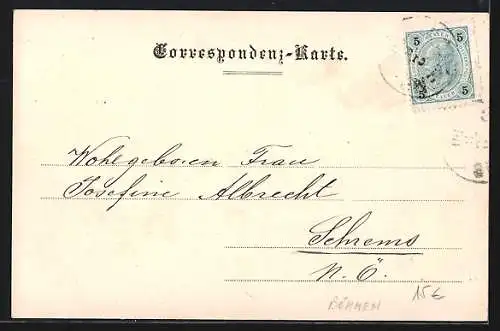 Correspondenz-Karte.
5 5
5 5
Wohlgeboren Frau
Josefine Albrecht
Schrems
N. Ö.
BÖHMEN 15€